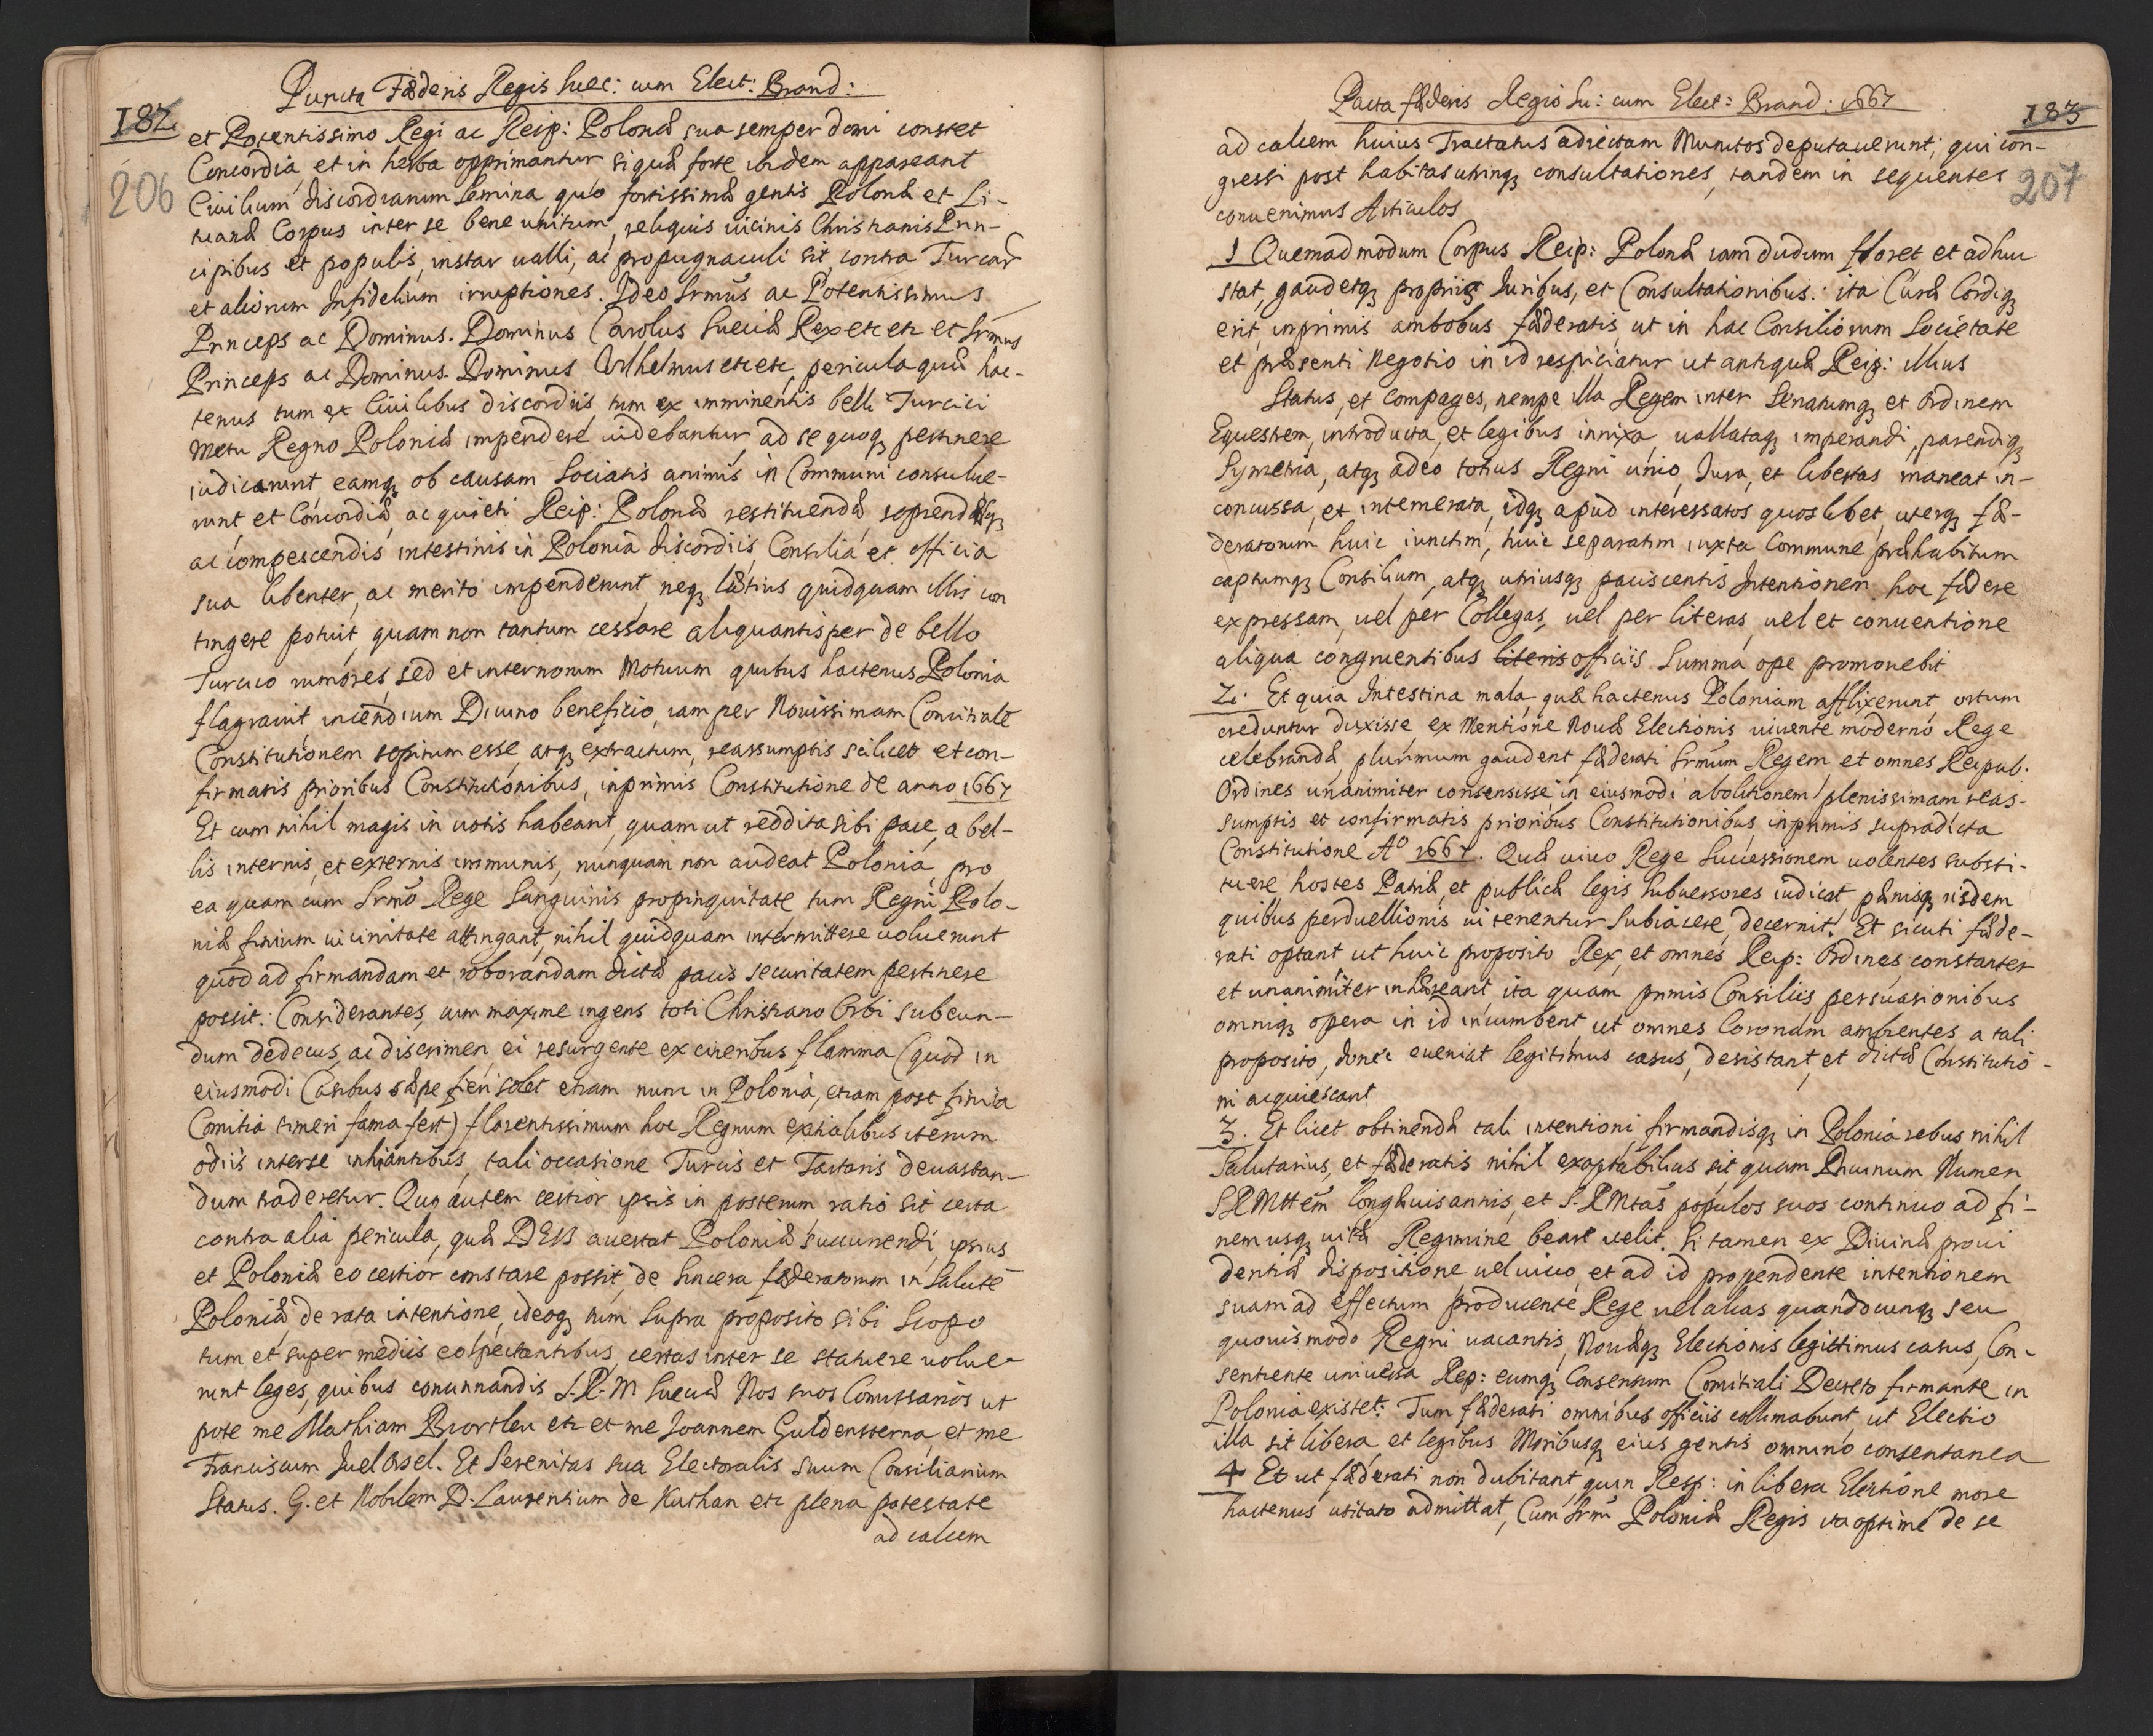 Puncta Fæderis Regis Suec: cum Elect: Brand:
182
206
et Potentissimo Regi ac Reip: Polonæ sua semper domi constet
Concordia, et in herba opprimantur, si quæ forte ibidem appareant
Ciuilium discordiarum semina quo fortissimæ gentis Polonæ et Li-
tuanæ Corpus inter se bene unitum, reliquis uicinis Christianis Prin-
cipibus et populis, instar ualli, ac propugnaculi sit contra Turcar
et aliorum Infidelium irruptiones. Ideo Srmus ac Potentissimus
Princeps ac Dominus. Dominus Carolus Sueciæ Rex etc etc et Srmus
Princeps ac Dominus. Dominus Wilhelmus etc etc, pericula quæ hac-
tenus tum ex Ciuilibus discordiis, tum ex imminentis belli Turcici
Metu Regno Poloniæ impendere uidebantur, ad se quoq₃ pertinere
iudicarunt, eamq₃ ob causam Sociatis animis in Communi consulue-
runt, et Concordiæ, ac quieti Reip: Polonæ restituendæ sopiendæq₃
ac compescendis intestinis in Polonia discordiis, Consilia et officia
sua libenter, ac merito impenderunt, neq₃ lætius quidquam illis con
tingere potuit, quam non tantum cessare aliquantisper de bello
Turcico rumores, sed et internorum Motuum quibus hactenus Polonia
flagrauit, incendium Diuino beneficio, iam per Nouissimam Comitialē
Constitutionem sopitum esse, atq₃ extractum, reassumptis scilicet et con-
firmatis prioribus Constitutionibus, inprimis Constitutione de anno 1667
Et cum nihil magis in uotis habeant, quam ut reddita sibi pace, a bel-
lis internis, et externis immunis, nunquam non audeat Polonia, pro
ea quam cum Srmo Rege Sanguinis propinquitate, tum Regni Polo-
niæ finium uicinitate attingant, nihil quidquam intermittere uoluerunt
quod ad firmandam et roborandam dictæ pacis securitatem pertinere
possit: Considerantes, cum maxime ingens toti Christiano Orbi subeun-
dum dedecus, ac discrimen, ei resurgente ex cineribus flamma (quod in
eiusmodi Casibus sæpe fieri solet etiam nunc in Polonia, etiam post finita
Comitia timeri fama fert) florentissimum hoc Regnum exitialibus iterum
odiis inter se inhiantibus, tali occasione Turcis et Tartaris deuastan-
dum traderetur. Quo autem certior ipsis in posterum ratio sit certa
contra alia pericula, quæ DEUS auertat Poloniæ succurrendi, ipsius
et Poloniæ eo certior constare possit, de Sincera fæderatorum in Salutē
Poloniæ, de rata intentione, ideoq₃ tum supra proposito sibi Scopo
tum et super mediis eo spectantibus, certas inter se statuere uolue-
runt leges, quibus concinnandis S. R. M Sueciæ Nos suos Comissarios ut
pote me Mathiam Biortleu etc et me Joannem Guldensterna, et me
Franciscum Juel Orsel. Et Serenitas sua Electoralis suum Consiliarium
Status. G. et Nobilem D. Laurentium de Kuthan etc plena potestate
ad calcem
Pacta fæderis Regis Su: cum Elect: Brand: 1667
183
207
ad calcem huius Tractatus adiectam Munitos deputauerunt; qui con-
gressi post habitas utrinq₃ consultationes, tandem in sequentes
conuenimus Articulos
1 Quemadmodum Corpus Reip: Polonæ iamdudum floret et adhuc
stat, gaudetq₃ propriis Iuribus, et Consultationibus: ita Curæ Cordiq₃
erit, inprimis ambobus fæderatis, ut in hac Consiliorum Societate
et præsenti Negotio in id respiciatur ut antiquæ Reip: illius
Status, et compages, nempe illa Regem inter Senatumq₃ et Ordinem
Equestrem, introducta, et legibus innixa, uallataq₃ imperandi, parendiq₃
Symetria, atq₃ adeo totius Regni unio, Iura, et libertas maneat in-
concussa, et intemerata, idq₃ apud interessatos quoslibet, uterq₃ fæ-
deratorum huic iunctim, huic separatim iuxta Commune præhabitum
captumq₃ Consilium, atq₃ utriusq₃ paciscentis Intentionem hoc fædere
expressam, uel per Collegas, uel per literas, uel et conuentione
aliqua congruentibus literis officiis Summa ope promouebit
2. Et quia Intestina mala, quæ hactenus Poloniam afflixerunt, ortum
creduntur duxisse, ex Mentione Nouæ Electionis uiuente moderno Rege
celebrandæ, plurimum gaudent fæderati Srmum Regem et omnes Reipub.
Ordines unanimiter consensisse in eiusmodi abolitionem plenissimam reas-
sumptis et confirmatis prioribus Constitutionibus inprimis supradicta
Constitutione Aº 1667. Quæ uiuo Rege Successionem uolentes substi-
tuere hostes Patriæ, et publicæ legis Subuersores iudicat, pænisq₃ iisdem
quibus perduellionis ui tenentur Subiacere, decernit. Et sicuti fæde-
rati optant ut huic proposito Rex, et omnes Reip: Ordines constanter
et unanimiter inhæreant, ita quam primis Consiliis persuasionibus
omniq₃ opera in id incumbent ut omnes Coronam ambientes a tali
proposito, donec eueniat legitimus casus, desistant, et dictæ Constitutio-
ni acquiescant
3. Et licet obtinendæ tali intentioni, firmandisq₃ in Polonia rebus nihil
Salutarius, et fæderatis nihil exoptabilius sit, quam Diuinum Numen
SRMttem longæuis annis, et S. RMtas populos suos continuo ad fi-
nem usq₃ uitæ Regimine beare uelit. Si tamen ex Diuinæ proui
dentiæ dispositione uel uiuo, et ad id propendente intentionem
suam ad effectum producente Rege, uel alias quandocunq₃ seu
quouismodo Regni uacantis, Nouæq₃ Electionis legittimus casus, Con-
sentiente uniuersa Rep: eumq₃ Consensum Comitiali Decreto firmante in
Polonia existet: Tum fæderati omnibus officiis collimabunt, ut Electio
illa sit libera et legibus Moribusq₃ eius gentis omnino consentanea
4 Et ut fæderati non dubitant, quin Resp: in libera Electione more
hactenus usitato admittat, Cum Srmi Poloniæ Regis ita optime de se